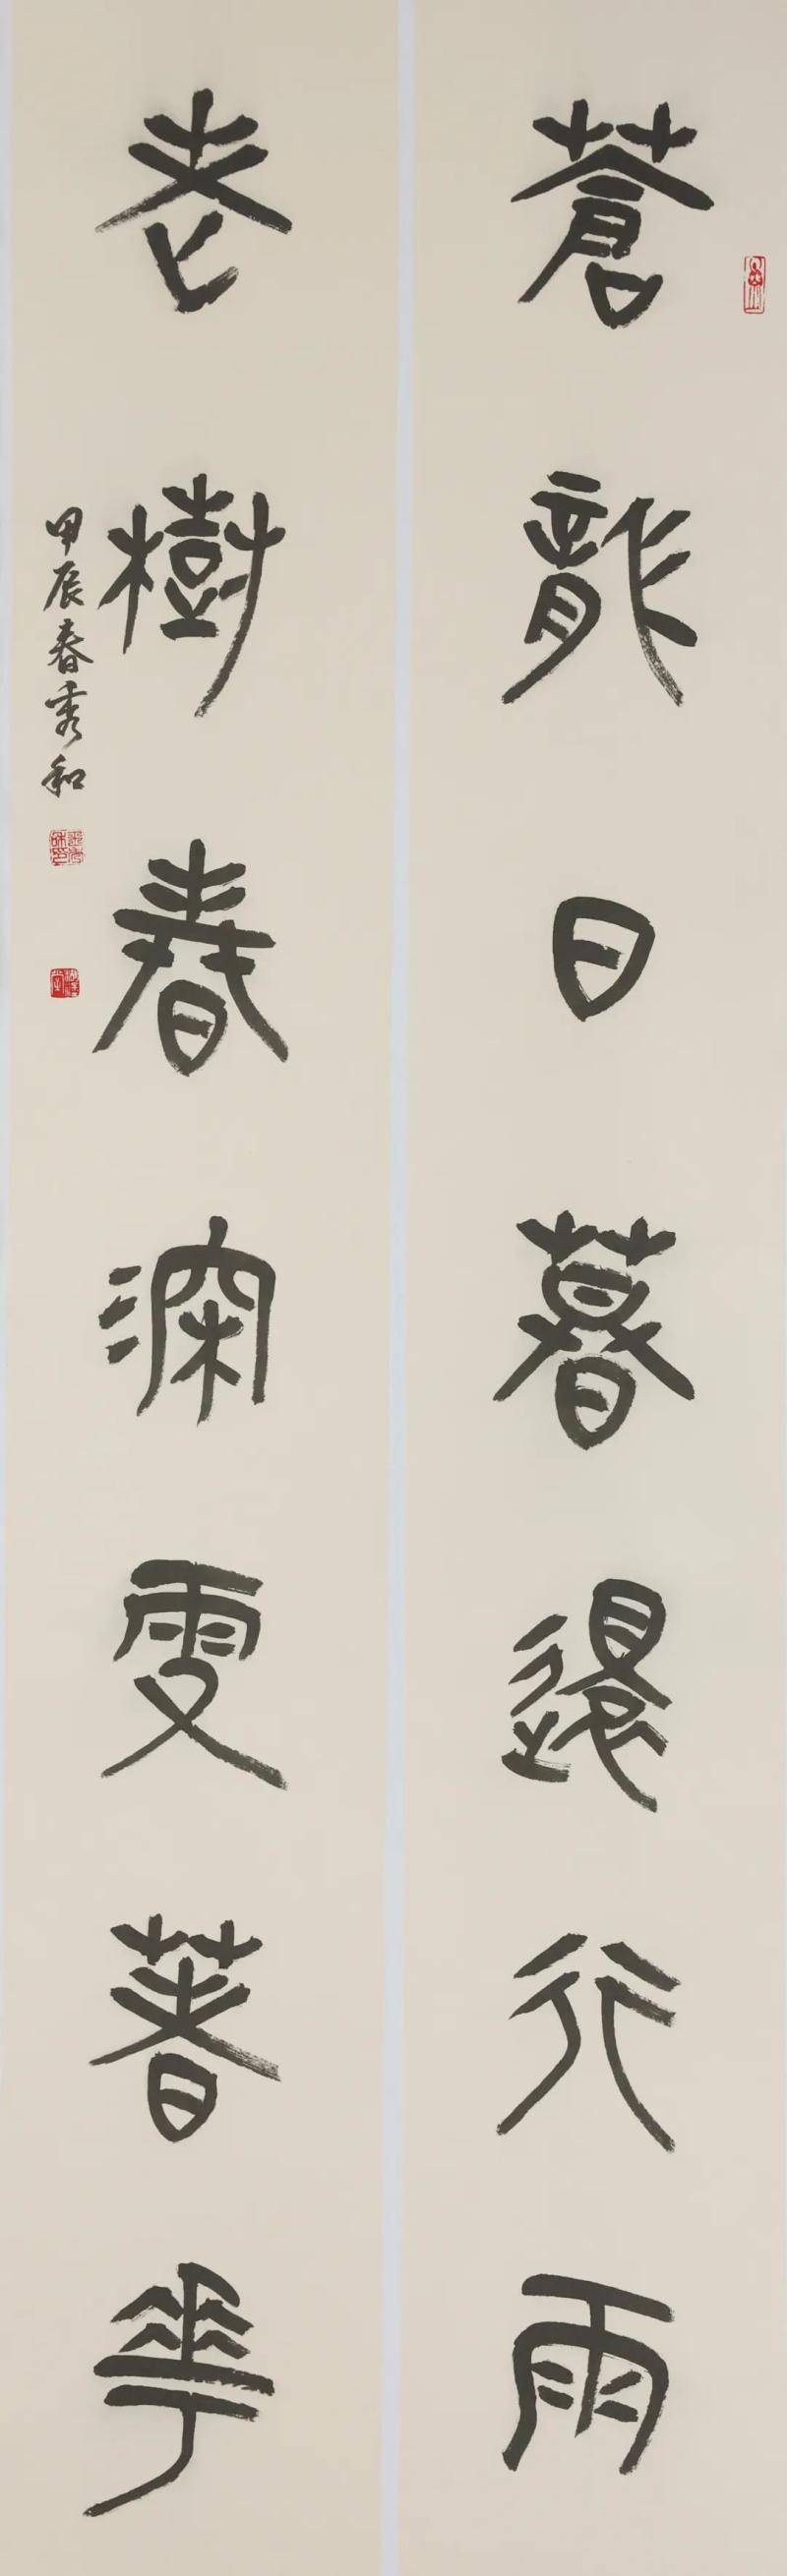 蒼龍日暮還行雨
老樹春深更著花
甲辰春秀和